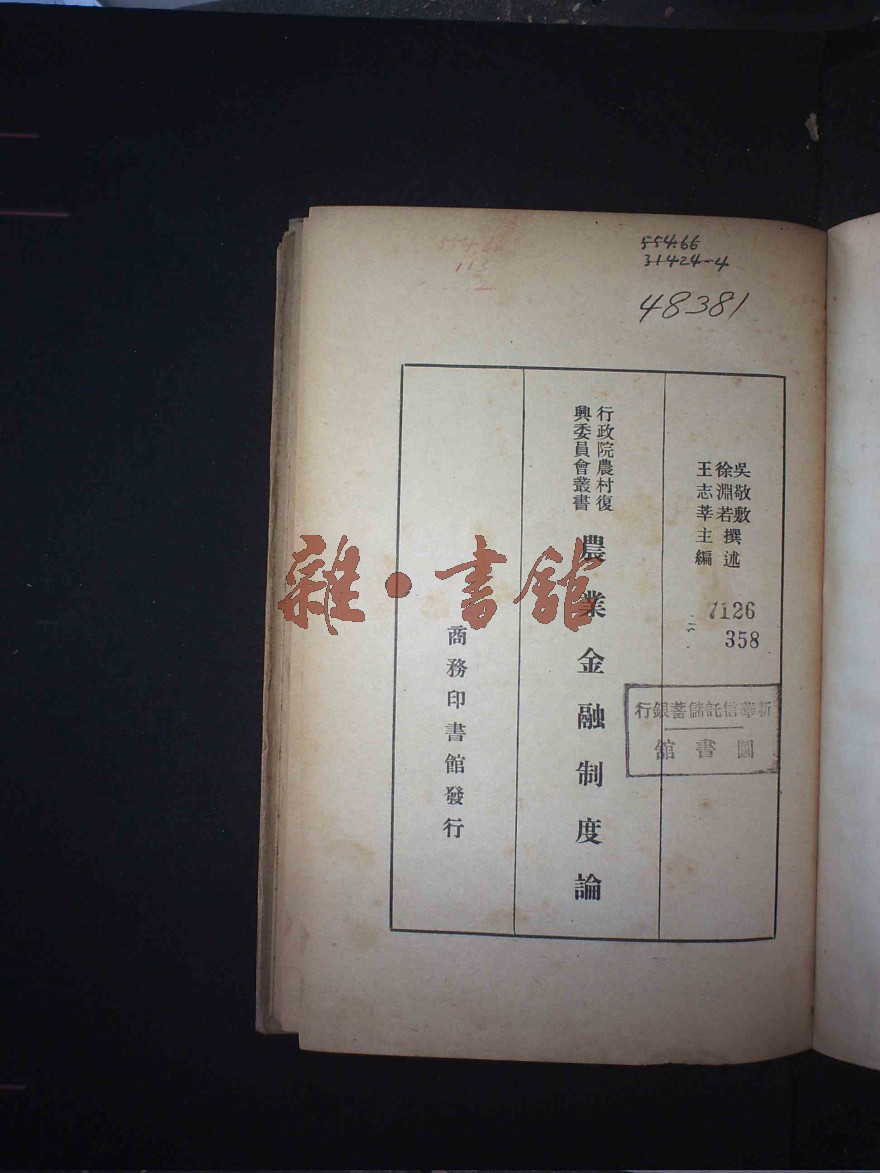 554.66
113
2
554.66
31424-4
48381
吳敬敷
徐淵若 撰述
王志莘主編
7126
358
新華信託儲蓄銀行
圖書館
行政院農村復
興委員會叢書
農業金融制度論
商務印書館發行
雜·書館